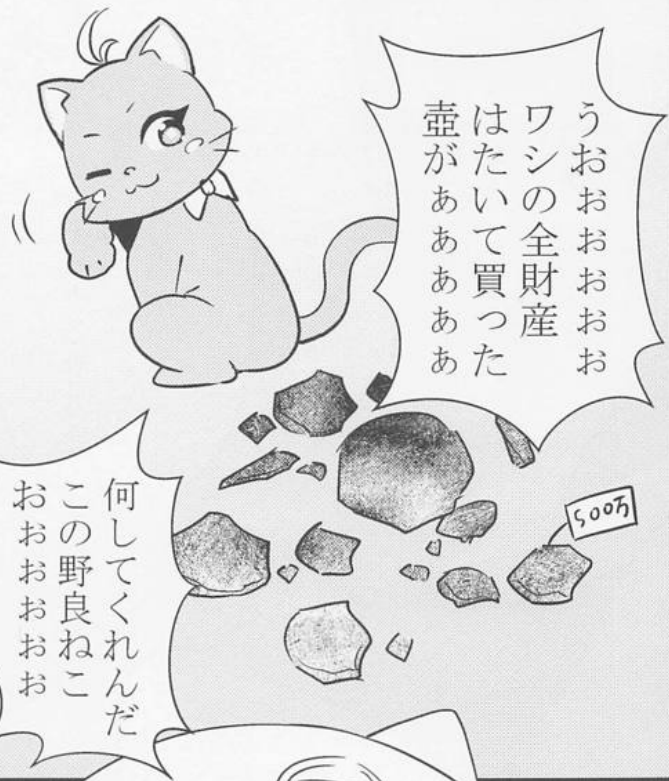 うおぉぉぉぉぉ
ワシの全財産
はたいて買った
壺がぁぁぁぁぁ
500万
何してくれんだ
この野良ねこ
おぉぉぉぉぉ